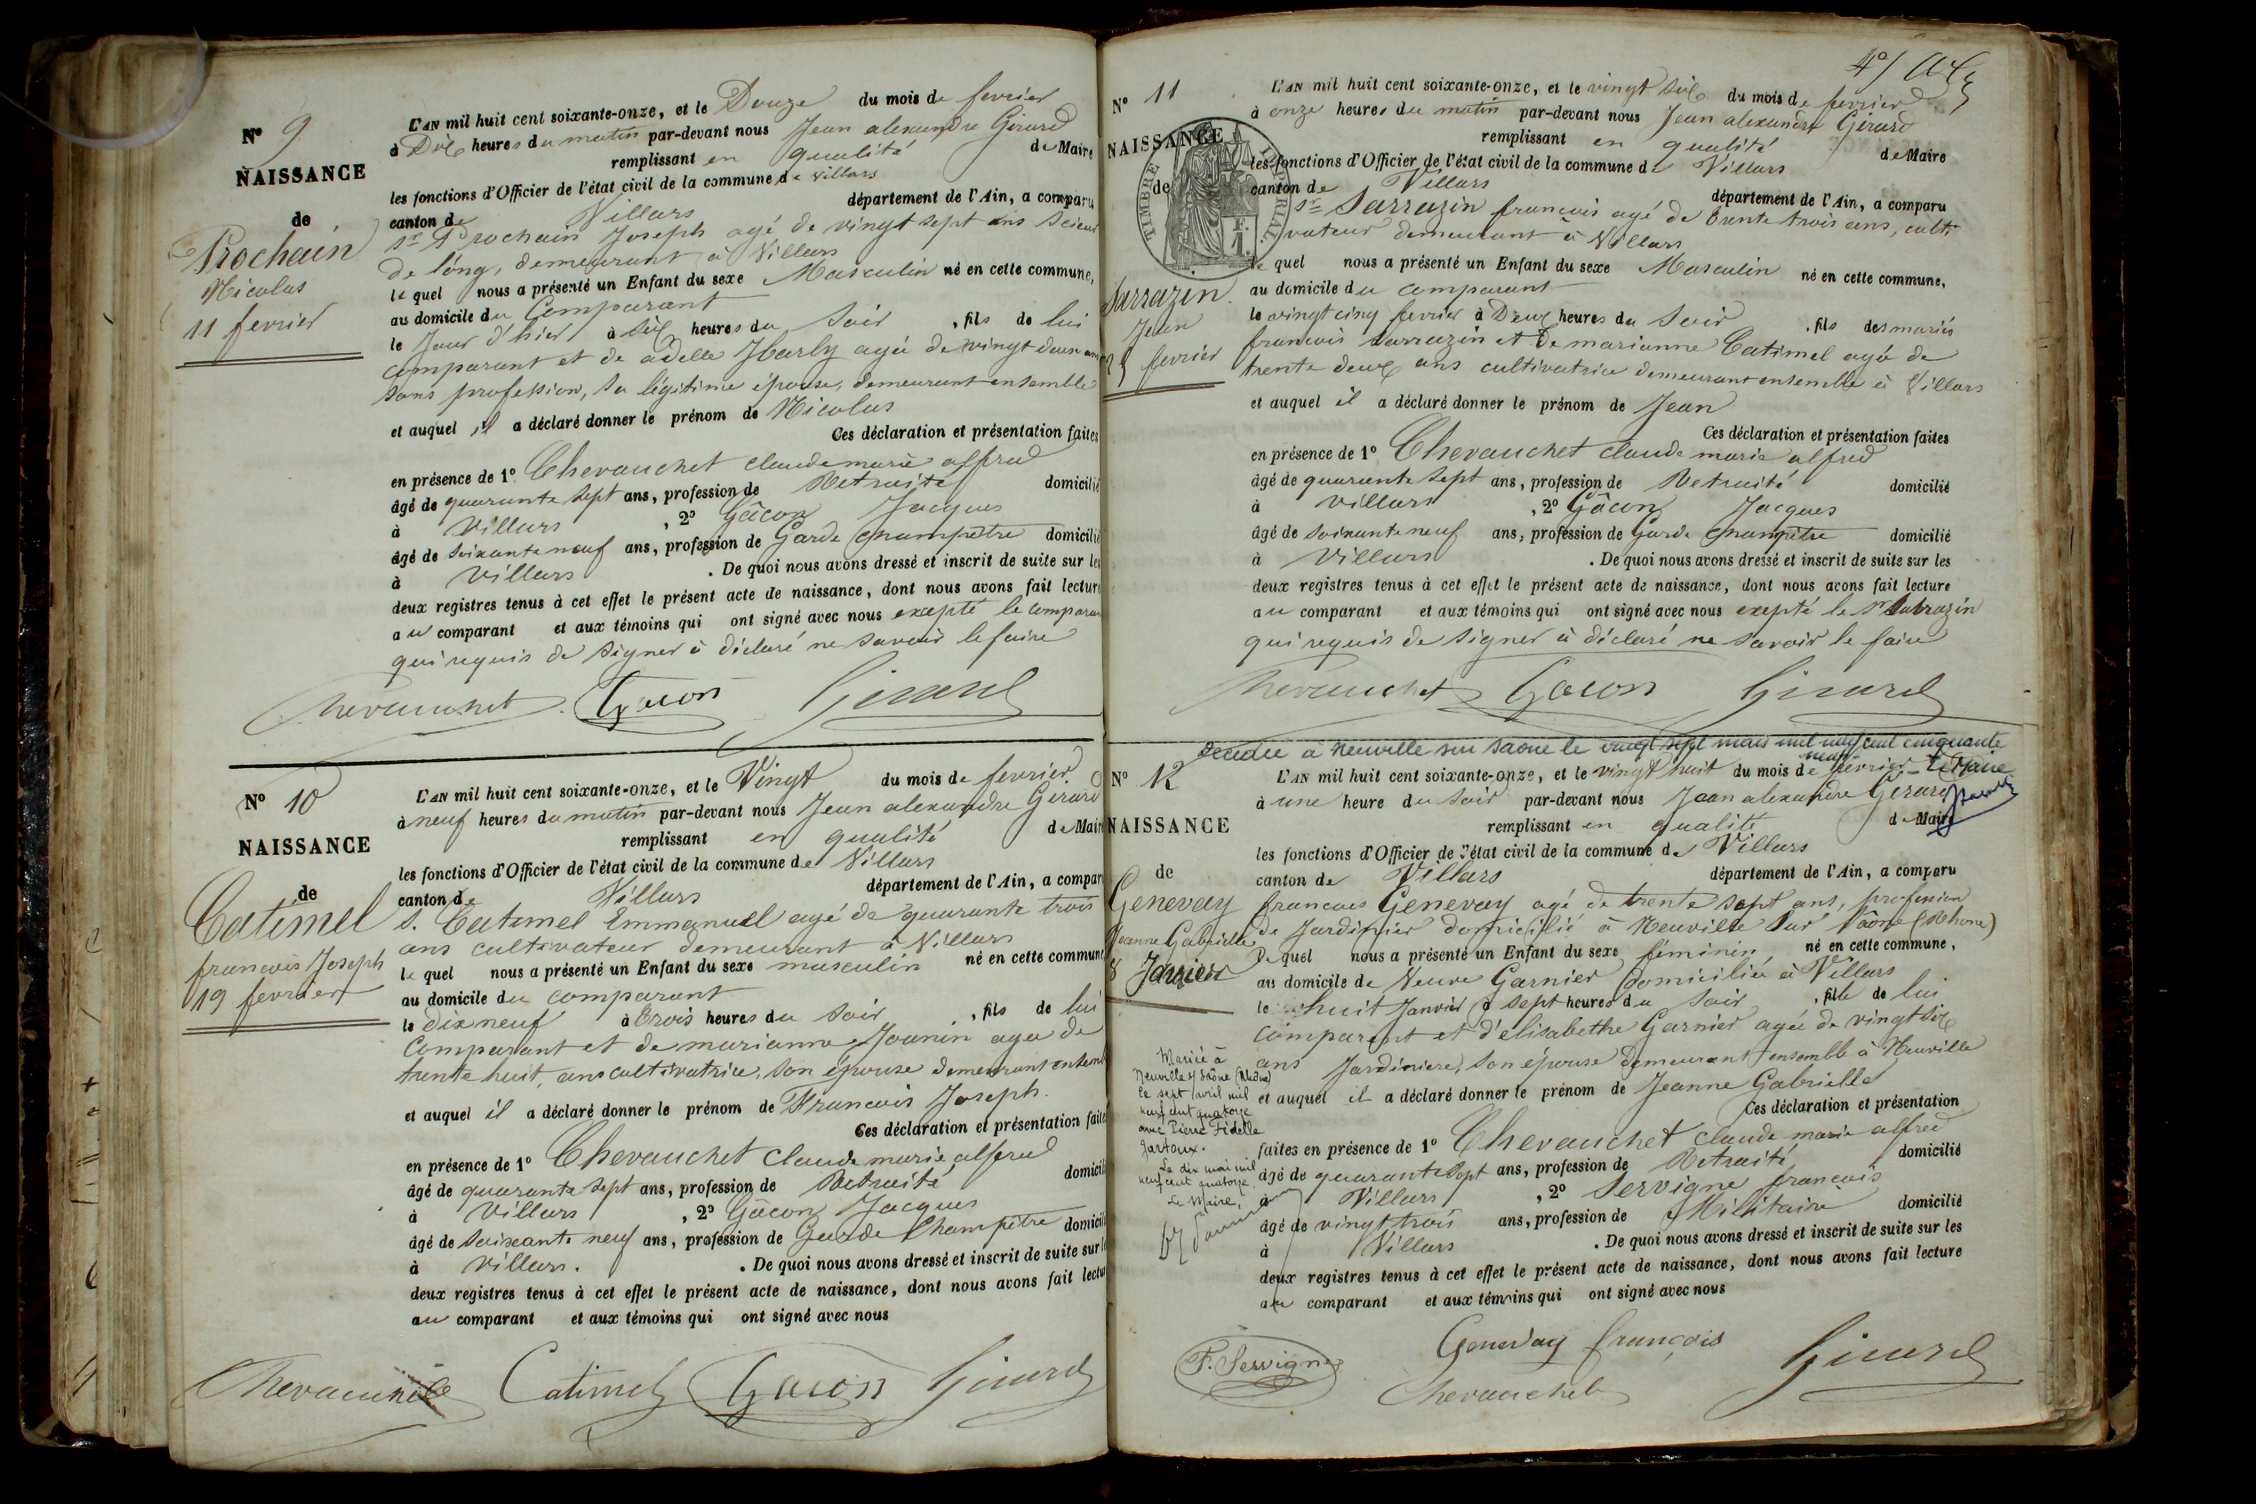 N° 9
NAISSANCE
de
Prochain
Nicolas
11 fevrier
L'AN mil huit cent soixante-onze, et le Douze du mois de fevrier
à Dix heures du matin par-devant nous Jean alexandre Girard
remplissant en qualité de Maire
les fonctions d'Officier de l'état civil de la commune de Villars
canton de Villars département de l'Ain, a comparu
sr Prochain Joseph agé de vingt sept ans Scieur
de long, demeurant à Villars
le quel nous a présenté un Enfant du sexe Masculin né en cette commune,
au domicile du Comparant
le Jour d'hier à six heures du Soir , fils de lui
comparant et de adelle Harly agée de vingt deux ans
sans profession, sa légitime épouse, demeurant ensemble
et auquel il a déclaré donner le prénom de Nicolas
Ces déclaration et présentation faites
en présence de 1° Chevauchet claude marie alfred
âgé de quarante sept ans, profession de Retraité domicilié
à Villars , 2° Gâcon Jacques
âgé de soixante neuf ans, profession de Garde champêtre domicilié
à Villars . De quoi nous avons dressé et inscrit de suite sur les
deux registres tenus à cet effet le présent acte de naissance, dont nous avons fait lecture
au comparant et aux témoins qui ont signé avec nous excepté le comparant
qui requis de signer à déclaré ne savoir le faire
Chevauchet Gacon Girard
N° 10
NAISSANCE
de
Catimel
francois Joseph
19 fevrier
L'AN mil huit cent soixante-onze, et le Vingt du mois de fevrier
à neuf heures du matin par-devant nous Jean alexandre Girard
remplissant en qualité de Maire
les fonctions d'Officier de l'état civil de la commune de Villars
canton de Villars département de l'Ain, a comparu
s. Catimel Emmanuel agé de quarante trois
ans cultivateur demeurant à Villars
le quel nous a présenté un Enfant du sexe masculin né en cette commune
au domicile du comparant
le dix neuf à trois heures du soir , fils de lui
comparant et de marianne Joanin agée de
trente huit ans cultivatrice, son épouse demeurant ensemble
et auquel il a déclaré donner le prénom de Francois Joseph.
Ces déclaration et présentation faites
en présence de 1° Chevauchet Claude marie alfred
âgé de quarante sept ans, profession de Retraité domicilié
à Villars , 2° Gâcon Jacques
âgé de soixante neuf ans, profession de Garde Champêtre domicilié
à Villars. . De quoi nous avons dressé et inscrit de suite sur les
deux registres tenus à cet effet le présent acte de naissance, dont nous avons fait lecture
au comparant et aux témoins qui ont signé avec nous
Chevauchet Catimel Gacon Girard
4e/
N° 11
NAISSANCE
de
Sarrazin
Jean
25 fevrier
TIMBRE IMPÉRIAL
L'AN mil huit cent soixante-onze, et le vingt six du mois de fevrier
à onze heures du matin par-devant nous Jean alexandre Girard
remplissant en qualité de Maire
les fonctions d'Officier de l'état civil de la commune de Villars
canton de Villars département de l'Ain, a comparu
sr Sarrazin francois agé de trente trois ans, culti
vateur demeurant à Villars
le quel nous a présenté un Enfant du sexe Masculin né en cette commune,
au domicile du comparant
le vingt cinq fevrier à Deux heures du Soir , fils des mariés
francois Sarrazin et de marianne Catimel agée de
trente deux ans cultivatrice demeurant ensemble à Villars
et auquel il a déclaré donner le prénom de Jean
Ces déclaration et présentation faites
en présence de 1° Chevauchet claude marie alfred
âgé de quarante sept ans, profession de Retraité domicilié
à Villars , 2° Gâcon Jacques
âgé de soixante neuf ans, profession de Garde champêtre domicilié
à Villars . De quoi nous avons dressé et inscrit de suite sur les
deux registres tenus à cet effet le présent acte de naissance, dont nous avons fait lecture
au comparant et aux témoins qui ont signé avec nous exepté le sr Sarrazin
qui requis de signer à déclaré ne savoir le faire
Chevauchet Gacon Girard
Décédée à Neuville sur Saône le vingt sept mars mil neuf cent cinquante
neuf - Le Maire
N° 12
NAISSANCE
de
Genevay
Jeanne Gabrielle
8 Janvier
L'AN mil huit cent soixante-onze, et le vingt huit du mois de fevrier
à une heure du soir par-devant nous Jean alexandre Girard
remplissant en qualité de Maire
les fonctions d'Officier de l'état civil de la commune de Villars
canton de Villars département de l'Ain, a comparu
francois Genevay agé de trente sept ans, profession
de Jardinier domicilié à Neuville sur Saône (Rhone)
le quel nous a présenté un Enfant du sexe féminin né en cette commune,
au domicile de Veuve Garnier domiciliée à Villars
le huit Janvier à sept heures du soir , fille de lui
comparant et d'elisabethe Garnier agée de vingt six
ans Jardiniere, son épouse demeurant ensemble à Neuville
et auquel il a déclaré donner le prénom de Jeanne Gabrielle
Ces déclaration et présentation
faites en présence de 1° Chevauchet claude marie alfred
âgé de quarante sept ans, profession de Retraité domicilié
à Villars , 2° Servigne francois
âgé de vingt trois ans, profession de Militaire domicilié
à Villars . De quoi nous avons dressé et inscrit de suite sur les
deux registres tenus à cet effet le présent acte de naissance, dont nous avons fait lecture
au comparant et aux témoins qui ont signé avec nous
Mariée à
Neuville s/ Saône (Rhône)
le sept avril mil
neuf cent quatorze
avec Pierre Fidelle
Jartoux.
Le dix mai mil
neuf cent quatorze
Le Maire,
F. Servigne Genevay françois
Chevauchet Girard